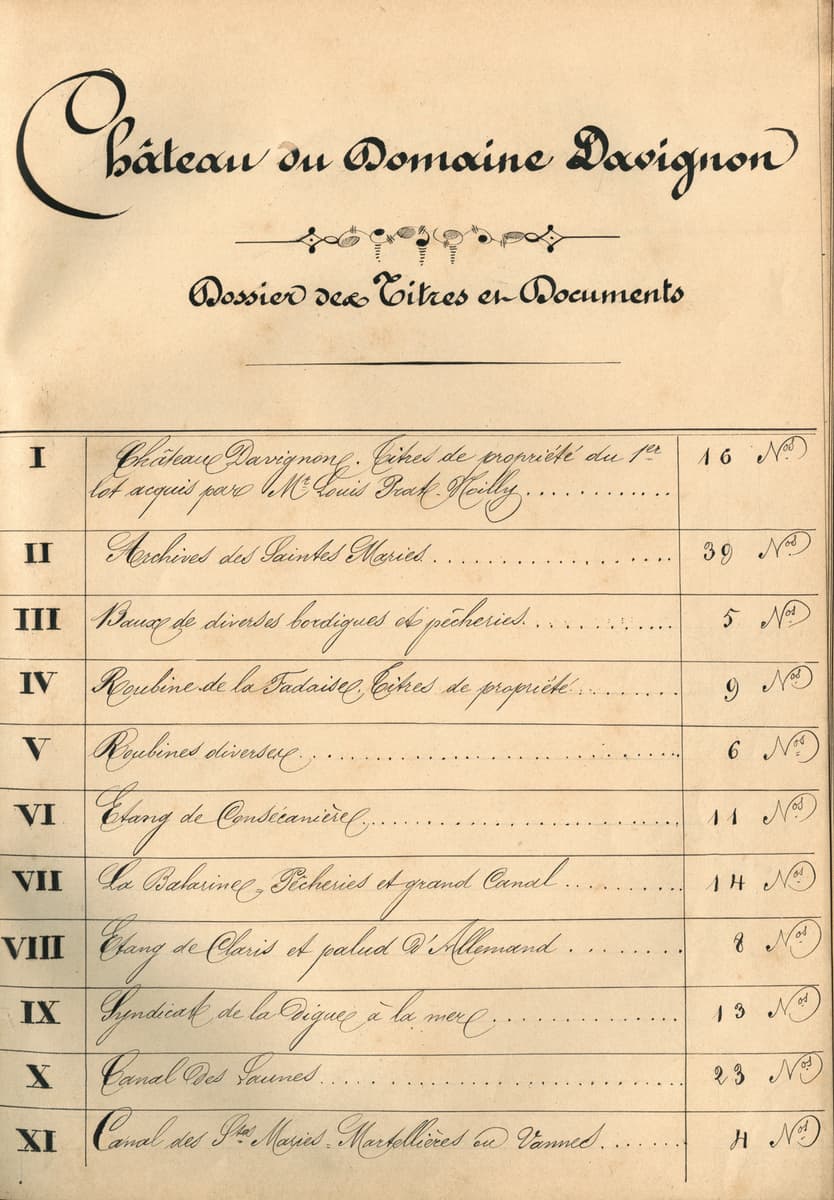 Château du Domaine Davignon
Dossier des Titres et Documents
I Château Davignon. Titres de propriété du 1er 16 Nos
lot acquis par Mr Louis Prat-Noilly...........
II Archives des Saintes Maries.................. 39 Nos
III Baux de diverses bordigues et pêcheries........... 5 Nos
IV Roubine de la Fadaise. Titres de propriété........ 9 Nos
V Roubines diverses........................... 6 Nos
VI Etang de Consécanière....................... 11 Nos
VII La Batarine, Pêcheries et grand Canal......... 14 Nos
VIII Etang de Claris et palud d'Allemand........ 8 Nos
IX Syndicat de la Digue à la mer............... 13 Nos
X Canal des Launes............................ 23 Nos
XI Canal des Stes Maries-Martellières ou Vannes....... 4 Nos